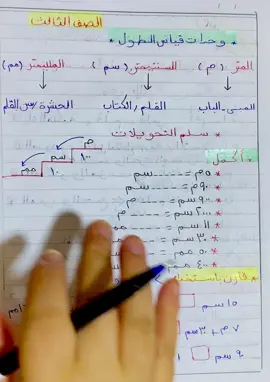 الصف الثالث
* وحدات قياس الطول *
المتر (م) السنتيمتر (سم) الملليمتر (مم)
المبنى - الباب القلم / الكتاب الحشرة / سن القلم
* سلم التحويلات *
م
سم ١٠٠
مم ١٠
* أكمل
* ٥ م = ---- سم
* ٩٠ م = ---- سم
* ٩٠٠ سم = ---- م
* ٢٠٠٠ سم = ---- م
* ١١ سم = ----
* ٣٠ سم = ----
* ٥٠ مم =
* ٤٠ مم
* قارن
١٥ سم
٧ م + ٣ سم
٩ سم